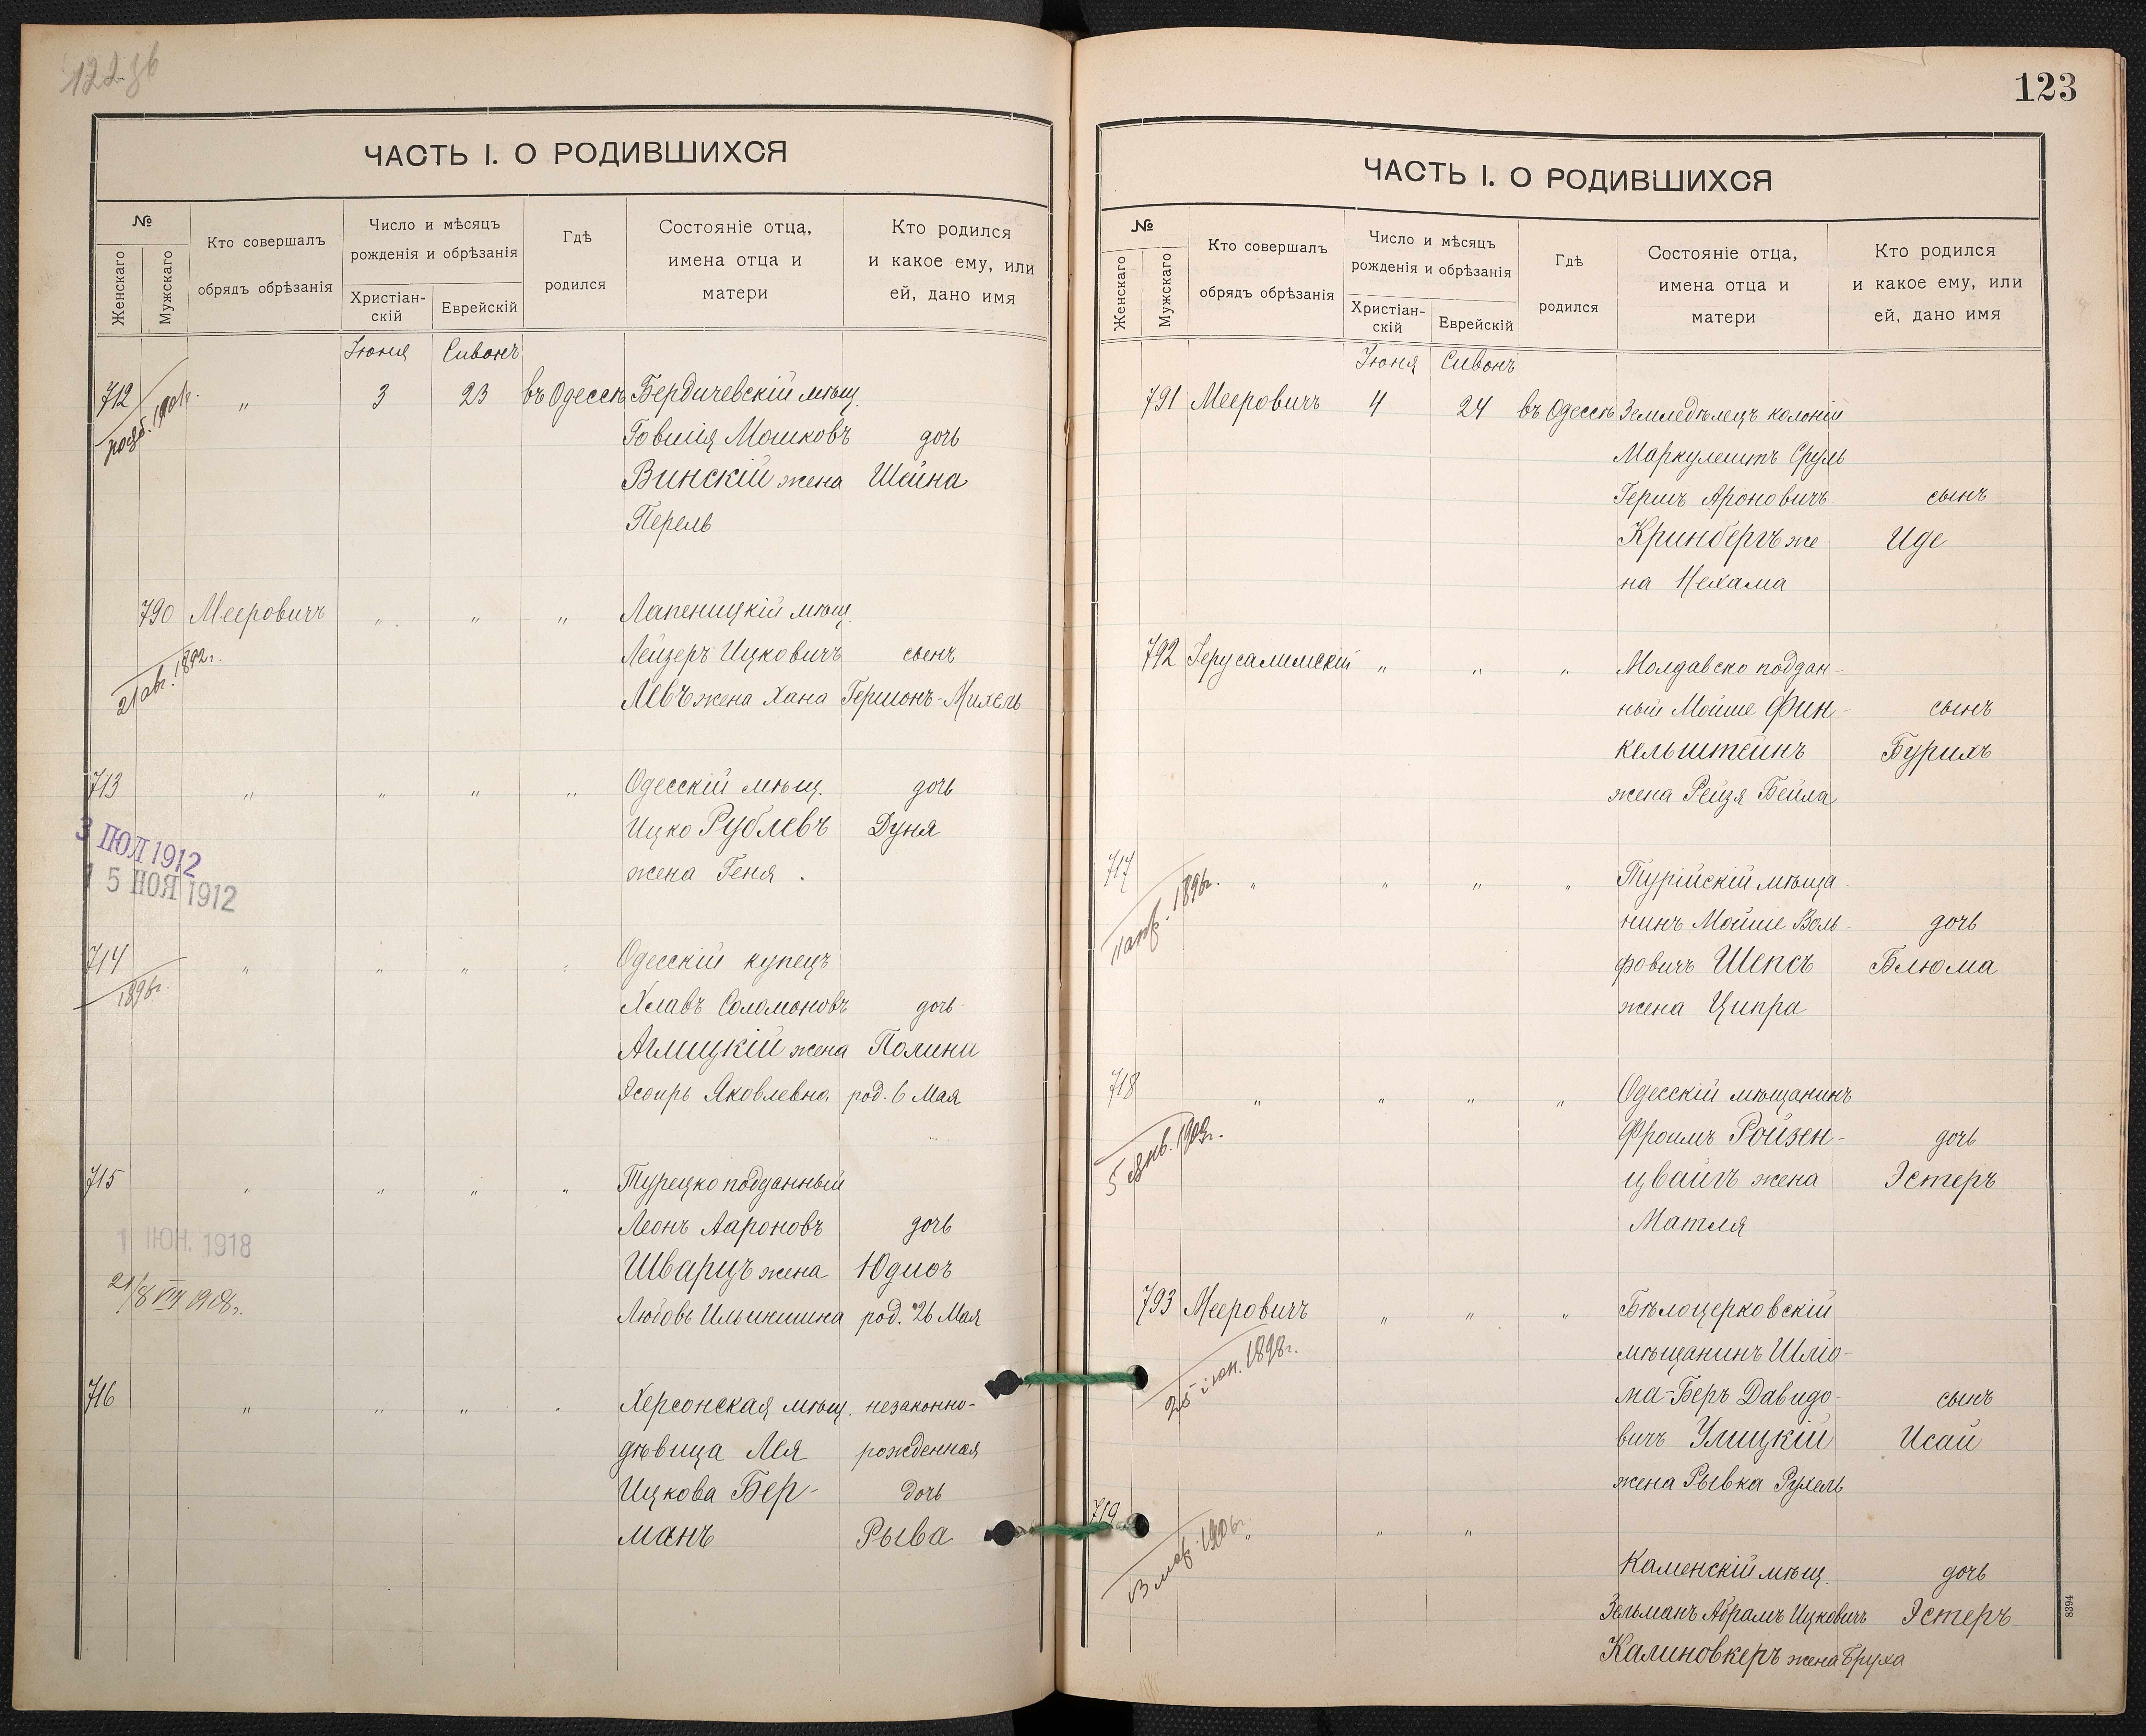 122
ЧАСТЬ I. О РОДИВШИХСЯ
№
Женскаго
Мужскаго
Кто совершалъ
обрядъ обрѣзанія
Число и мѣсяцъ
рожденія и обрѣзанія
Христіан-
скій
Еврейскій
Гдѣ
родился
Состояніе отца,
имена отца и
матери
Кто родился
и какое ему, или
ей, дано имя
Іюня Сивонъ
712 " 3 23 въ Одессѣ Бердичевскій мѣщ.
1901г.
Говшія Мошковъ дочь
Винскій жена Шейна
Перель
790 Мееровичъ " " " Лапеницкій мѣщ.
21 авг. 1892г.
Лейзеръ Ицковичъ сынъ
Левъ жена Хана Гершонъ-Михель
713 " " " " Одесскій мѣщ. дочь
Ицко Рублевъ Дуня
жена Геня.
3 ІЮЛ 1912
15 НОЯ 1912
714 " " " " Одесскій купецъ
1896г.
Хлавъ Соломоновъ дочь
Аглицкій жена Полина
Эсѳирь Яковлевна род. 6 Мая
715 " " " " Турецко подданный
Леонъ Аароновъ дочь
Шварцъ жена Юдиѳь
Любовь род. 26 Мая
1 ІЮН. 1918
21/8 VIII 1908г.
716 " " " " Херсонская мѣщ. незаконно-
дѣвица Лея рожденная
Ицкова Бер- дочь
манъ Рыва
123
ЧАСТЬ I. О РОДИВШИХСЯ
№
Женскаго
Мужскаго
Кто совершалъ
обрядъ обрѣзанія
Число и мѣсяцъ
рожденія и обрѣзанія
Христіан-
скій
Еврейскій
Гдѣ
родился
Состояніе отца,
имена отца и
матери
Кто родился
и какое ему, или
ей, дано имя
Іюня Сивонъ
791 Мееровичъ 4 24 въ Одессѣ Земледѣлецъ колоніи
Маркулештъ Сруль
Гершъ Ароновичъ сынъ
Кринбергъ же- Иде
на Нехама
792 Іерусалимскій " " " Молдавско поддан-
ный Мойше Фин- сынъ
кельштейнъ Бурихъ
жена Рейзя Бейла
717 " " " " Турійскій мѣща-
11 апр. 1896г.
нинъ Мойше Воль- дочь
фовичъ Шепсъ Блюма
жена Ципра
718 " " " " Одесскій мѣщанинъ
5 янв. 1903г.
Фроимъ Ройзен- дочь
цвайгъ жена Эстеръ
Матля
793 Мееровичъ " " " Бѣлоцерковскій
25 іюн. 1898г.
мѣщанинъ Шліо-
ма-Беръ Давидо- сынъ
вичъ Улицкій Исай
жена Рывка Рухель
719 " " "
13 мар. 1906г.
Каменскій мѣщ. дочь
Зельманъ Абрамъ Ицковичъ Эстеръ
Калиновкеръ жена Бруха
8394